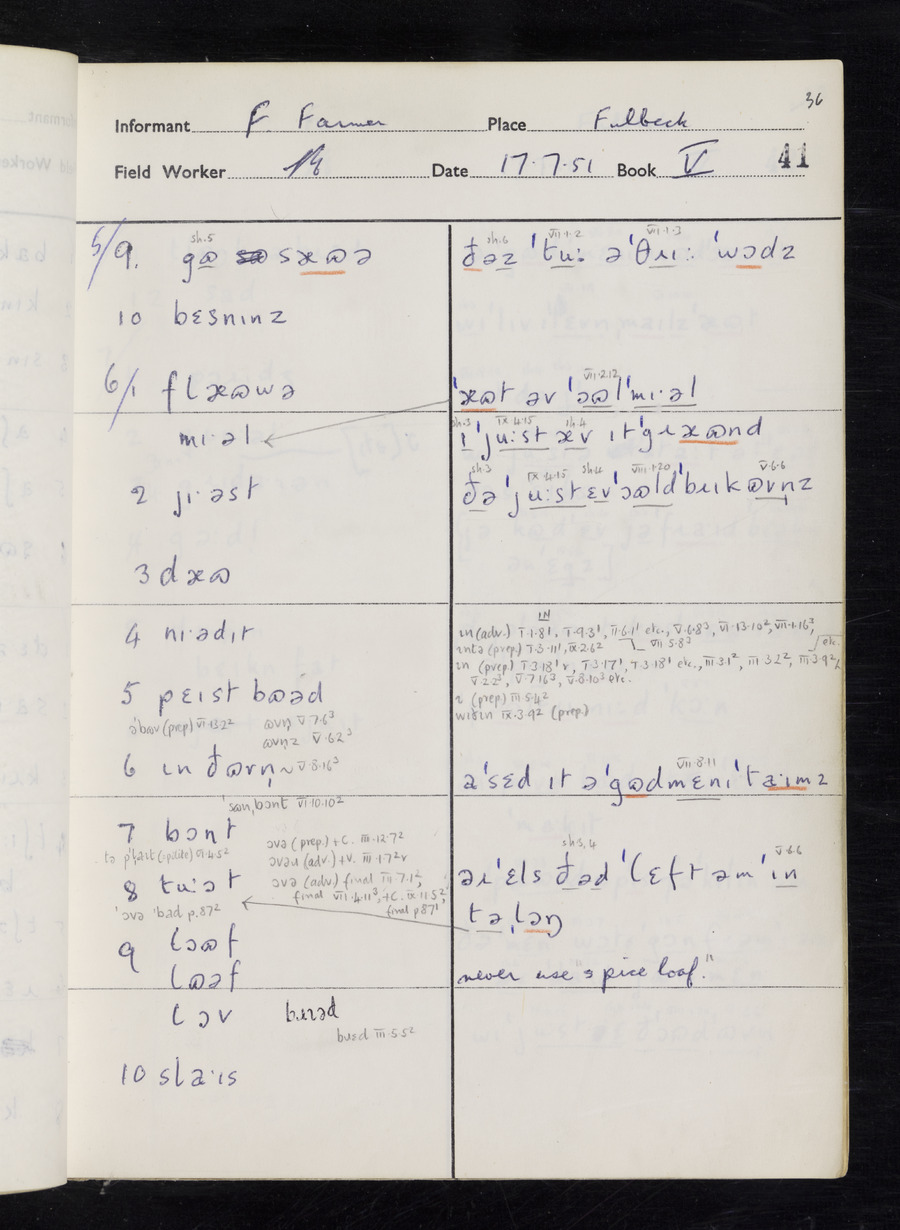 36
Informant F. Farmer Place Fulbeck
Field Worker Date 17.7.51 Book V 41
sh.5
5/9. gɷ sæɷə
sh.6 VII.1.2 VII.1.3
ðəz 'tu: ə 'θɹɪ: 'wɔdz
10 bɛsnɪnz
6/1 flæɷwə
VII.2.12
'æɷt əv 'ɔɷl 'mɪ·əl
mɪ·əl
sh.3 IX.4.15 sh.4
ɪ 'ju:st æv ɪt 'gɹæɷnd
2 jɪ·əst
sh.3 IX.4.15 sh.4 VIII.1.20 V.6.6
ðə 'ju:st ɛv 'ɔɷld 'bɹɪk ɷvn̩z
3 dæɷ
IN
4 nɪ·ədɪt
ɪn (adv.) I.1.8¹, I.9.3¹, II.6.1¹ etc., V.6.8³, VI.13.10², VII.1.16³,
ɪntə (prep.) I.3.11¹, IX.2.6² VII.5.8³ etc.
ɪn (prep) I.3.18¹r, I.3.17¹, I.3.18¹ etc., III.3.1², III.3.2², III.3.9²,
V.2.2³, V.7.16³, V.8.10³ etc.
ɪ (prep) III.5.4²
wɪðɪn IX.3.9² (prep.)
5 pɛɪst bɷəd
ə'bɷv (prep) VI.13.2² ɷvn̩ V.7.6³
ɷvn̩z V.6.2³
6 ɪn ðɷvn̩ ~ V.8.16³
VII.8.11
a 'sɛd ɪt ə 'gɷdmɛnɪ 'ta:ɪmz
'sɷm,bɔnt VI.10.10²
7 bɔnt
ɔvə (prep.) + C. III.12.7²
ɔvəɹ (adv.) + V. III.1.7²v
8 tu:ət
ɔvə (adv.) final III.7.1²,
final VII.4.11³, + C. IX.11.5²,
final p87¹
'ɔvə 'bad p.87²
sh.3, 4 V.6.6
əɪ 'ɛls ðəd 'lɛft əm 'ɪn
tə ,lɔŋ
9 lɔɷf
lɷəf
never use "spice loaf."
lɔv bɹɪəd
bɹɛd III.5.5²
10 sla·ɪs